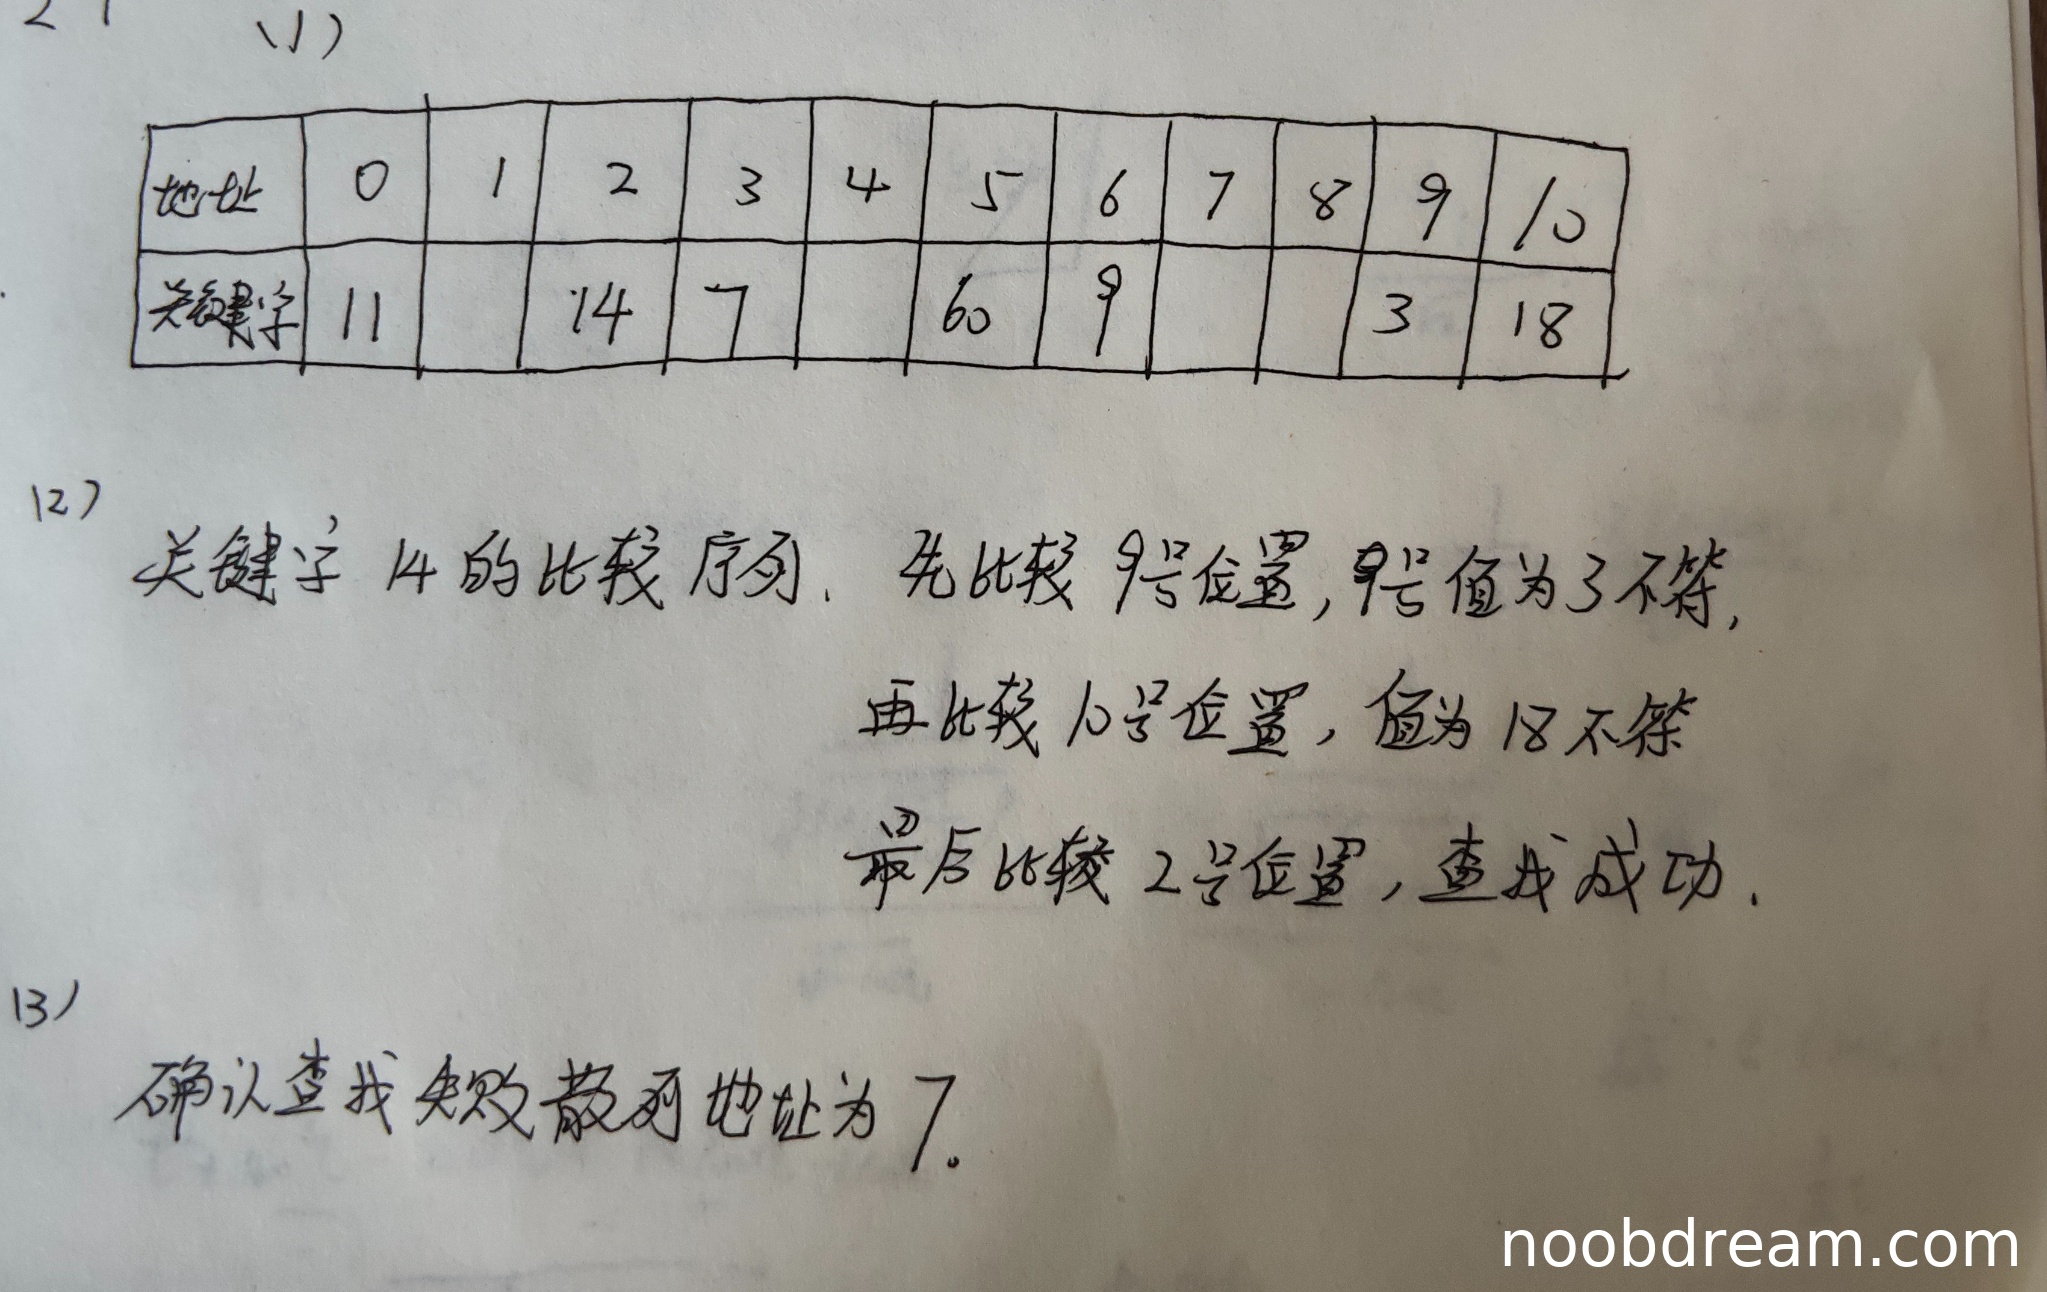 (1)
地址 0 1 2 3 4 5 6 7 8 9 10
关键字 11 14 7 60 9 3 18
(2)
关键字 14 的比较序列. 先比较 9号位置, 9号值为3不符,
再比较 10号位置, 值为 18 不符
最后比较 2号位置, 查找成功.
(3)
确认查找失败散列地址为 7.
noobdream.com